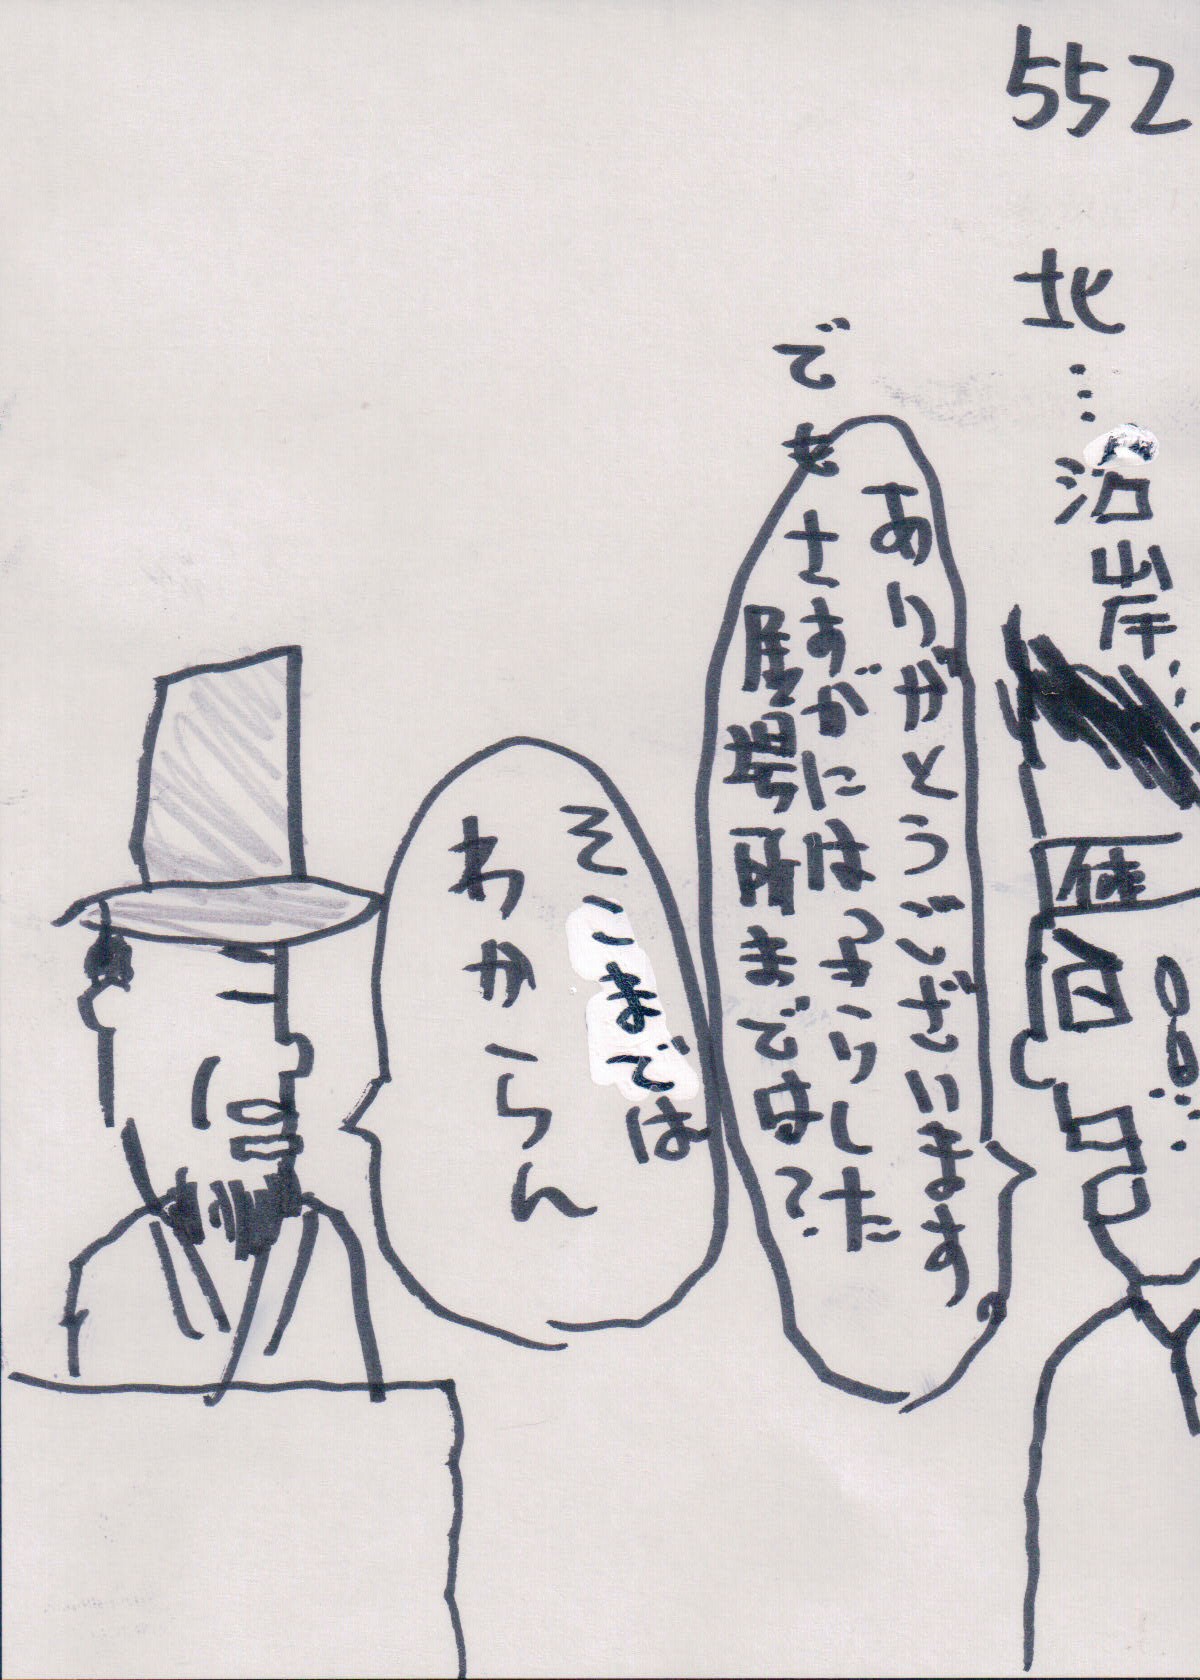 552
北…沿岸…
ありがとうございます
でもさすがにはっきりした
居場所までは?
そこまでは
わからん